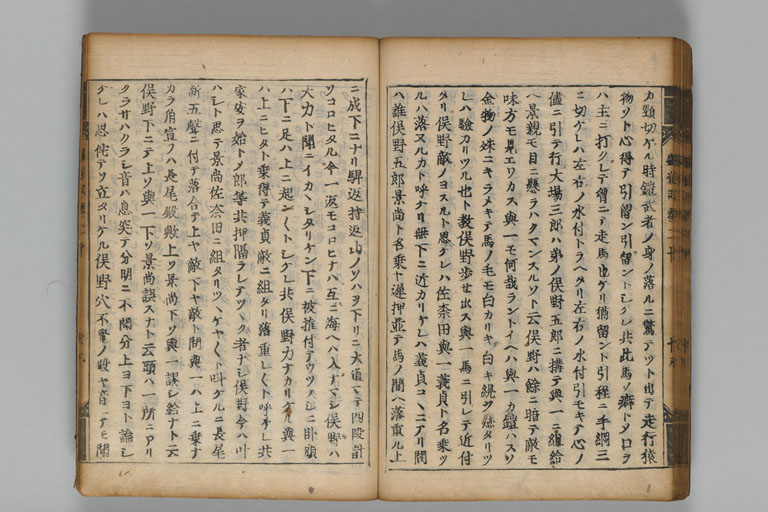 カ頸切ケル時鎧武者ノ身ノ落ルニ驚テツト出テ走行猿
物ソト心得テ引留ン引留ントシケレ共此馬ノ癖トソロヲ
ハ主ニ打クレテ曽ニテ走馬也ケリ猶留ント引程ニ手綱三
ニ切ケレハ左右ノ水付トラヘタリ左右ノ水付引モキテ心ノ
儘ニ引テ行大場三郎ハ弟ノ俣野五郎ニ搆テ與一ニ組給
ヘ景親モ目ニ懸ラハクマンスルソト云俣野ハ餘ニ暗テ敵モ
味方モ見エワカス與一何哉ラントイヘハ與一カ鎧ハスソ
金物ノ殊ニキラメキテ馬ノ毛モ白カリキ白キ縨ヲ懸タリツ
レハ驗カリツル也ト教俣野歩セ出ス與一馬ニ引レテ近付
タリ俣野敵ノヨスルト思ケレハ佐奈田與一義貞ト名乗ツ
ルハ落ヌルカト呼ケリ無下ニ近カリケレハ義貞コヽニアリ問
ハ誰俣野五郎景尚ト名乗テ遅押並テ馬ノ間ヘ落重ル上
ニ成下ニナリ驛返持返山ノソハヲ下リニ大道マテ四段計
ソコロヒタル今一返モコロヒナハ互ニ海ヘハ入ナマシ俣野ハ
大力ト聞ニイカヽシタリケン下ニ被推付テウツフシニ卧頭
ハ下ニ足ハ上ニ起ンヽトシケレ共俣野力ナカリケル與一
ハ上ニヒタト乗得テ義貞敵ニ組タリ落重レヽト呼ケレ共
家安ヲ始トメ郎等共押隔ラレテツヽク者ナシ俣野今ハ叶
ハシト思テ景尚佐奈田ニ組タリツヽケヤヽト叫ケルニ長尾
新五聲ニ付テ落合テ上ヤ敵下ヤ敵ト問與一ハ上ニ乗ナ
カラ角宣フハ長尾殿歟上ソ景尚下ソ與一謬シ給ナト云
俣野下ニテ上ソ與一下ソ景尚誤スナト云頭ハ一所ニアリ
クラサハクラシ音ハ息突テ分明ニ不聞分上ヨ下ヨト論シ
ケレハ思侘テソ立タリケル俣野穴不覺ノ殿ヤ音ニテモ聞